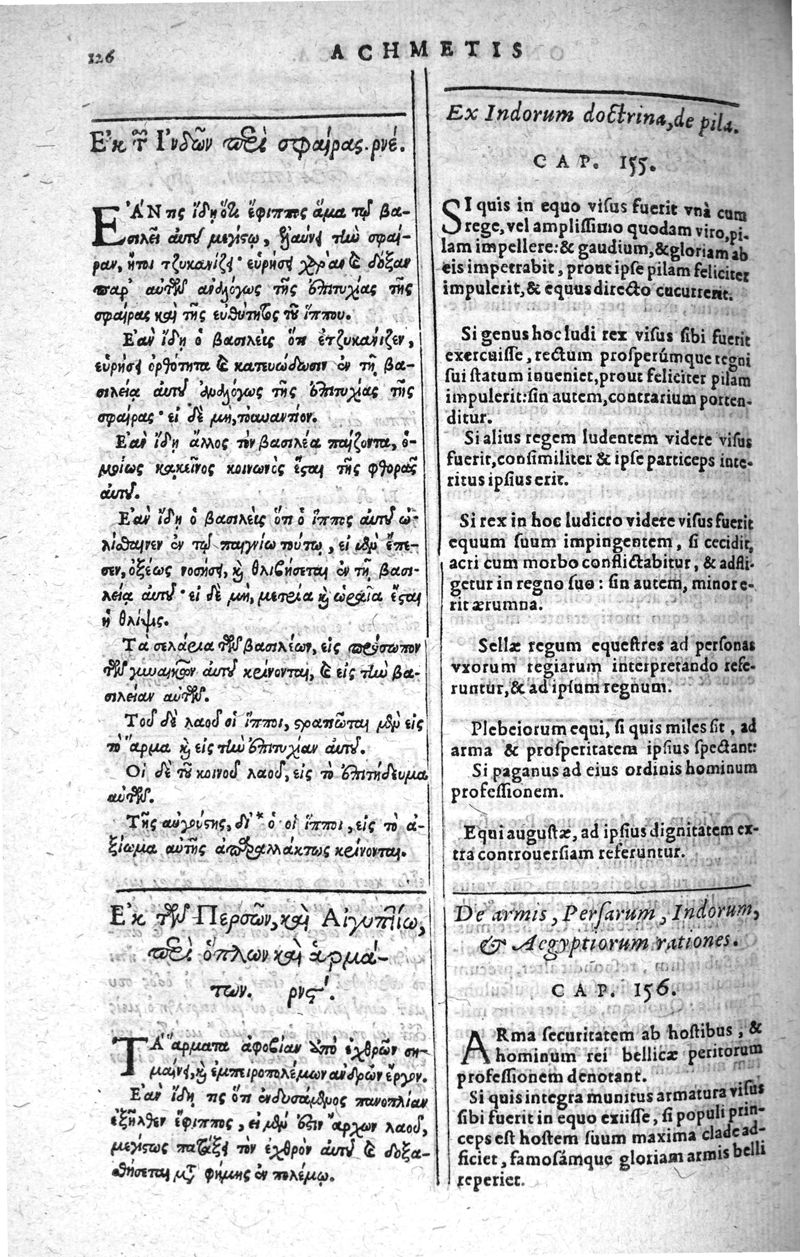 126
ACHMETIS
Ἐκ τῶν Ἰνδῶν περὶ σφαίρας. ρνέ.
ἘΑΝ τις ἴδῃ ὅτι ἔφιππος ἅμα τῷ βα-
σιλεῖ αὐτοῦ μεγίστῳ, ἤλαυνε τὴν σφαῖ-
ραν, ἤτοι τζυκανίζει· εὑρήσει χαρὰν καὶ δόξαν
παρ' αὐτῶν ἀναλόγως τῆς ἐπιτυχίας τῆς
σφαίρας καὶ τῆς εὐθύτητος τοῦ ἵππου.
Ἐὰν ἴδῃ ὁ βασιλεὺς ὅτι ἐτζυκάνιζεν,
εὑρήσει ὀρθότητα καὶ κατευώδωσιν ἐν τῇ βα-
σιλείᾳ αὐτοῦ ἀναλόγως τῆς ἐπιτυχίας τῆς
σφαίρας· εἰ δὲ μὴ, τοὐναντίον.
Ἐὰν ἴδῃ ἄλλος τὸν βασιλέα παίζοντα, ὁ-
μοίως κἀκεῖνος κοινωνὸς ἔσται τῆς φθορᾶς
αὐτοῦ.
Ἐὰν ἴδῃ ὁ βασιλεὺς ὅτι ὁ ἵππος αὐτοῦ ὠ-
λίσθαινεν ἐν τῷ παιγνίῳ τούτῳ, εἰ μὲν ἔπε-
σεν, ὀξέως νοσήσει, καὶ θλιβήσεται ἐν τῇ βασι-
λείᾳ αὐτοῦ· εἰ δὲ μὴ, μετρία καὶ ὡραία ἔσται
ἡ θλίψις.
Τὰ σελάρια τῶν βασιλέων, εἰς πρόσωπον
τῶν γυναικῶν αὐτοῦ κρίνονται, καὶ εἰς τὴν βα-
σιλείαν αὐτῶν.
Τοῦ δὲ λαοῦ οἱ ἵπποι, στρατιώτου μὲν εἰς
τὸ ἅρμα καὶ εἰς τὴν ἐπιτυχίαν αὐτοῦ.
Οἱ δὲ τοῦ κοινοῦ λαοῦ, εἰς τὸ ἐπιτήδευμα
αὐτῶν.
Τῆς αὐγούστης, δι' * ὁ οἱ ἵπποι, εἰς τὸ ἀ-
ξίωμα αὐτῆς ἀπαραλλάκτως κρίνονται.
Ἐκ τῶν Περσῶν, καὶ Αἰγυπτίων,
περὶ ὅπλων καὶ ἁρμά-
των. ρνϛ'.
ΤΑ ἅρματα ἀφοβίαν ὑπὸ ἐχθρῶν ση-
μαίνει, καὶ ἐμπειροπολέμων ἀνδρῶν ἔργον.
Ἐὰν ἴδῃ τις ὅτι ἐνδυσάμενος πανοπλίαν
ἐξῆλθεν ἔφιππος, εἰ μέν ἐστιν ἄρχων λαοῦ,
μεγίστως πατάξει τὸν ἐχθρὸν αὐτοῦ καὶ δοξα-
σθήσεται μετὰ φήμης ἐν πολέμῳ.
Ex Indorum doctrina, de pila.
CAP. 155.
SI quis in equo visus fuerit vnà cum
rege, vel amplissimo quodam viro, pi-
lam impellere: & gaudium, & gloriam ab
eis impetrabit, prout ipse pilam feliciter
impulerit, & equus directo cucurrerit.
Si genus hoc ludi rex visus sibi fuerit
exercuisse, rectum prosperúmque regni
sui statum inueniet, prout feliciter pilam
impulerit: sin autem, contrarium porten-
ditur.
Si alius regem ludentem videre visus
fuerit, consimiliter & ipse particeps inte-
ritus ipsius erit.
Si rex in hoc ludicro videre visus fuerit
equum suum impingentem, si cecidit,
acri cum morbo conflictabitur, & adfli-
getur in regno suo: sin autem, minor e-
rit ærumna.
Sellæ regum equestres ad personas
vxorum regiarum interpretando refe-
runtur, & ad ipsum regnum.
Plebeiorum equi, si quis miles sit, ad
arma & prosperitatem ipsius spectant:
Si paganus ad eius ordinis hominum
professionem.
Equi augustæ, ad ipsius dignitatem ex-
tra controuersiam referuntur.
De armis, Persarum, Indorum,
& Aegyptiorum rationes.
CAP. 156.
ARma securitatem ab hostibus, &
hominum rei bellicæ peritorum
professionem denotant.
Si quis integra munitus armatura visus
sibi fuerit in equo exiisse, si populi prin-
ceps est hostem suum maxima clade ad-
ficiet, famosámque gloriam armis belli
reperiet.